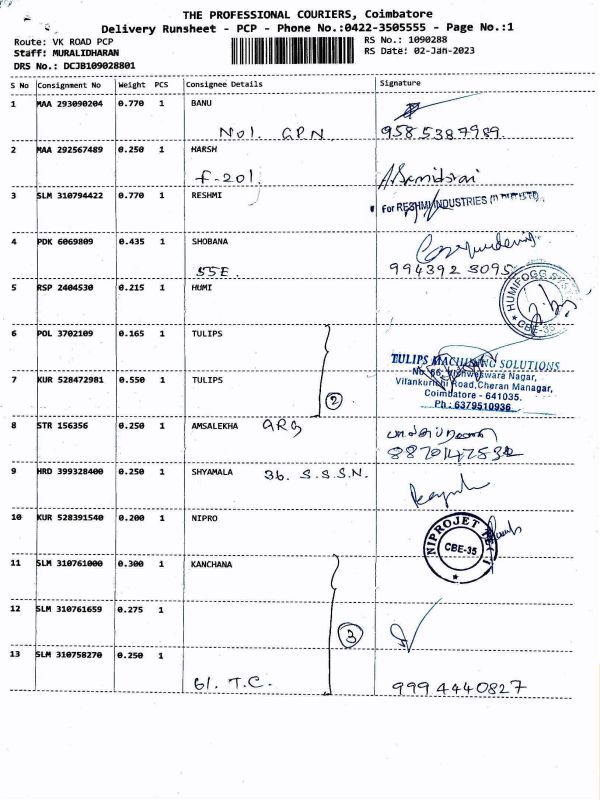 THE PROFESSIONAL COURIERS, Coimbatore
Delivery Runsheet - PCP - Phone No.:0422-3505555 - Page No.:1
Route: VK ROAD PCP
RS No.: 1090288
Staff: MURALIDHARAN
RS Date: 02-Jan-2023
DRS No.: DCJB109028801
S No Consignment No Weight PCS Consignee Details Signature
1 MAA 293090204 0.770 1 BANU
No1. GPN 9585387989
2 MAA 292567489 0.250 1 HARSH
f-201
3 SLM 310794422 0.770 1 RESHMI
For RESHMI INDUSTRIES
4 PDK 6069809 0.435 1 SHOBANA
55E 994392 3095
5 RSP 2404530 0.215 1 HUMI
HUMIFOGG
CBE-35
6 POL 3702109 0.165 1 TULIPS
TULIPS MACHINING SOLUTIONS
No. 66, Vigneswara Nagar,
7 KUR 528472981 0.550 1 TULIPS
Vilankurichi Road, Cheran Managar,
Coimbatore - 641035.
2
Ph : 6379510936
8 STR 156356 0.250 1 AMSALEKHA
9 HRD 399328400 0.250 1 SHYAMALA 36. S.S.S.N.
10 KUR 528391540 0.200 1 NIPRO
NIPROJET
CBE-35
11 SLM 310761000 0.300 1 KANCHANA
12 SLM 310761659 0.275 1
3
13 SLM 310758270 0.250 1
61. T.C. 9994440827